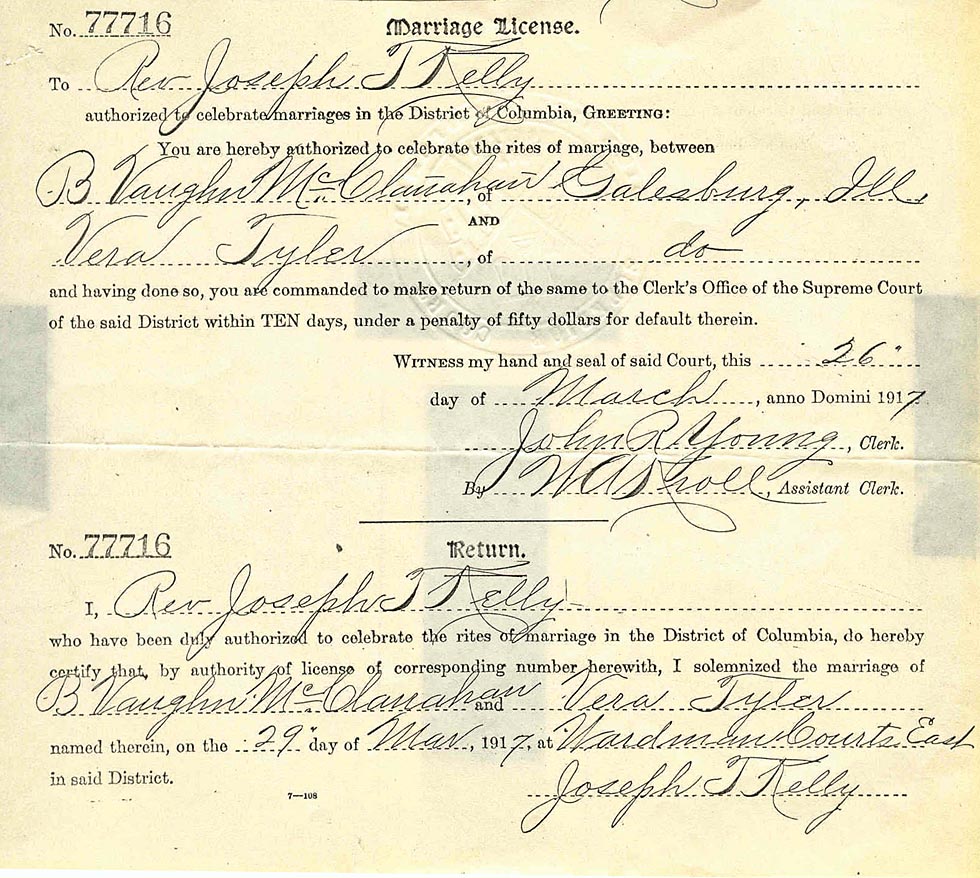 No. 77716 Marriage License.
To Rev Joseph T Kelly
authorized to celebrate marriages in the District of Columbia, GREETING:
You are hereby authorized to celebrate the rites of marriage, between
B Vaughn McClanahan, of Galesburg, Ill,
AND
Vera Tyler, of do
and having done so, you are commanded to make return of the same to the Clerk's Office of the Supreme Court
of the said District within TEN days, under a penalty of fifty dollars for default therein.
WITNESS my hand and seal of said Court, this 26"
day of March, anno Domini 1917
John R Young, Clerk.
By W A Kroll, Assistant Clerk.
No. 77716 Return.
I, Rev Joseph T Kelly
who have been duly authorized to celebrate the rites of marriage in the District of Columbia, do hereby
certify that, by authority of license of corresponding number herewith, I solemnized the marriage of
B Vaughn McClanahan and Vera Tyler
named therein, on the 29" day of Mar, 1917, at Wardman Courts East
in said District.
7—108
Joseph T Kelly